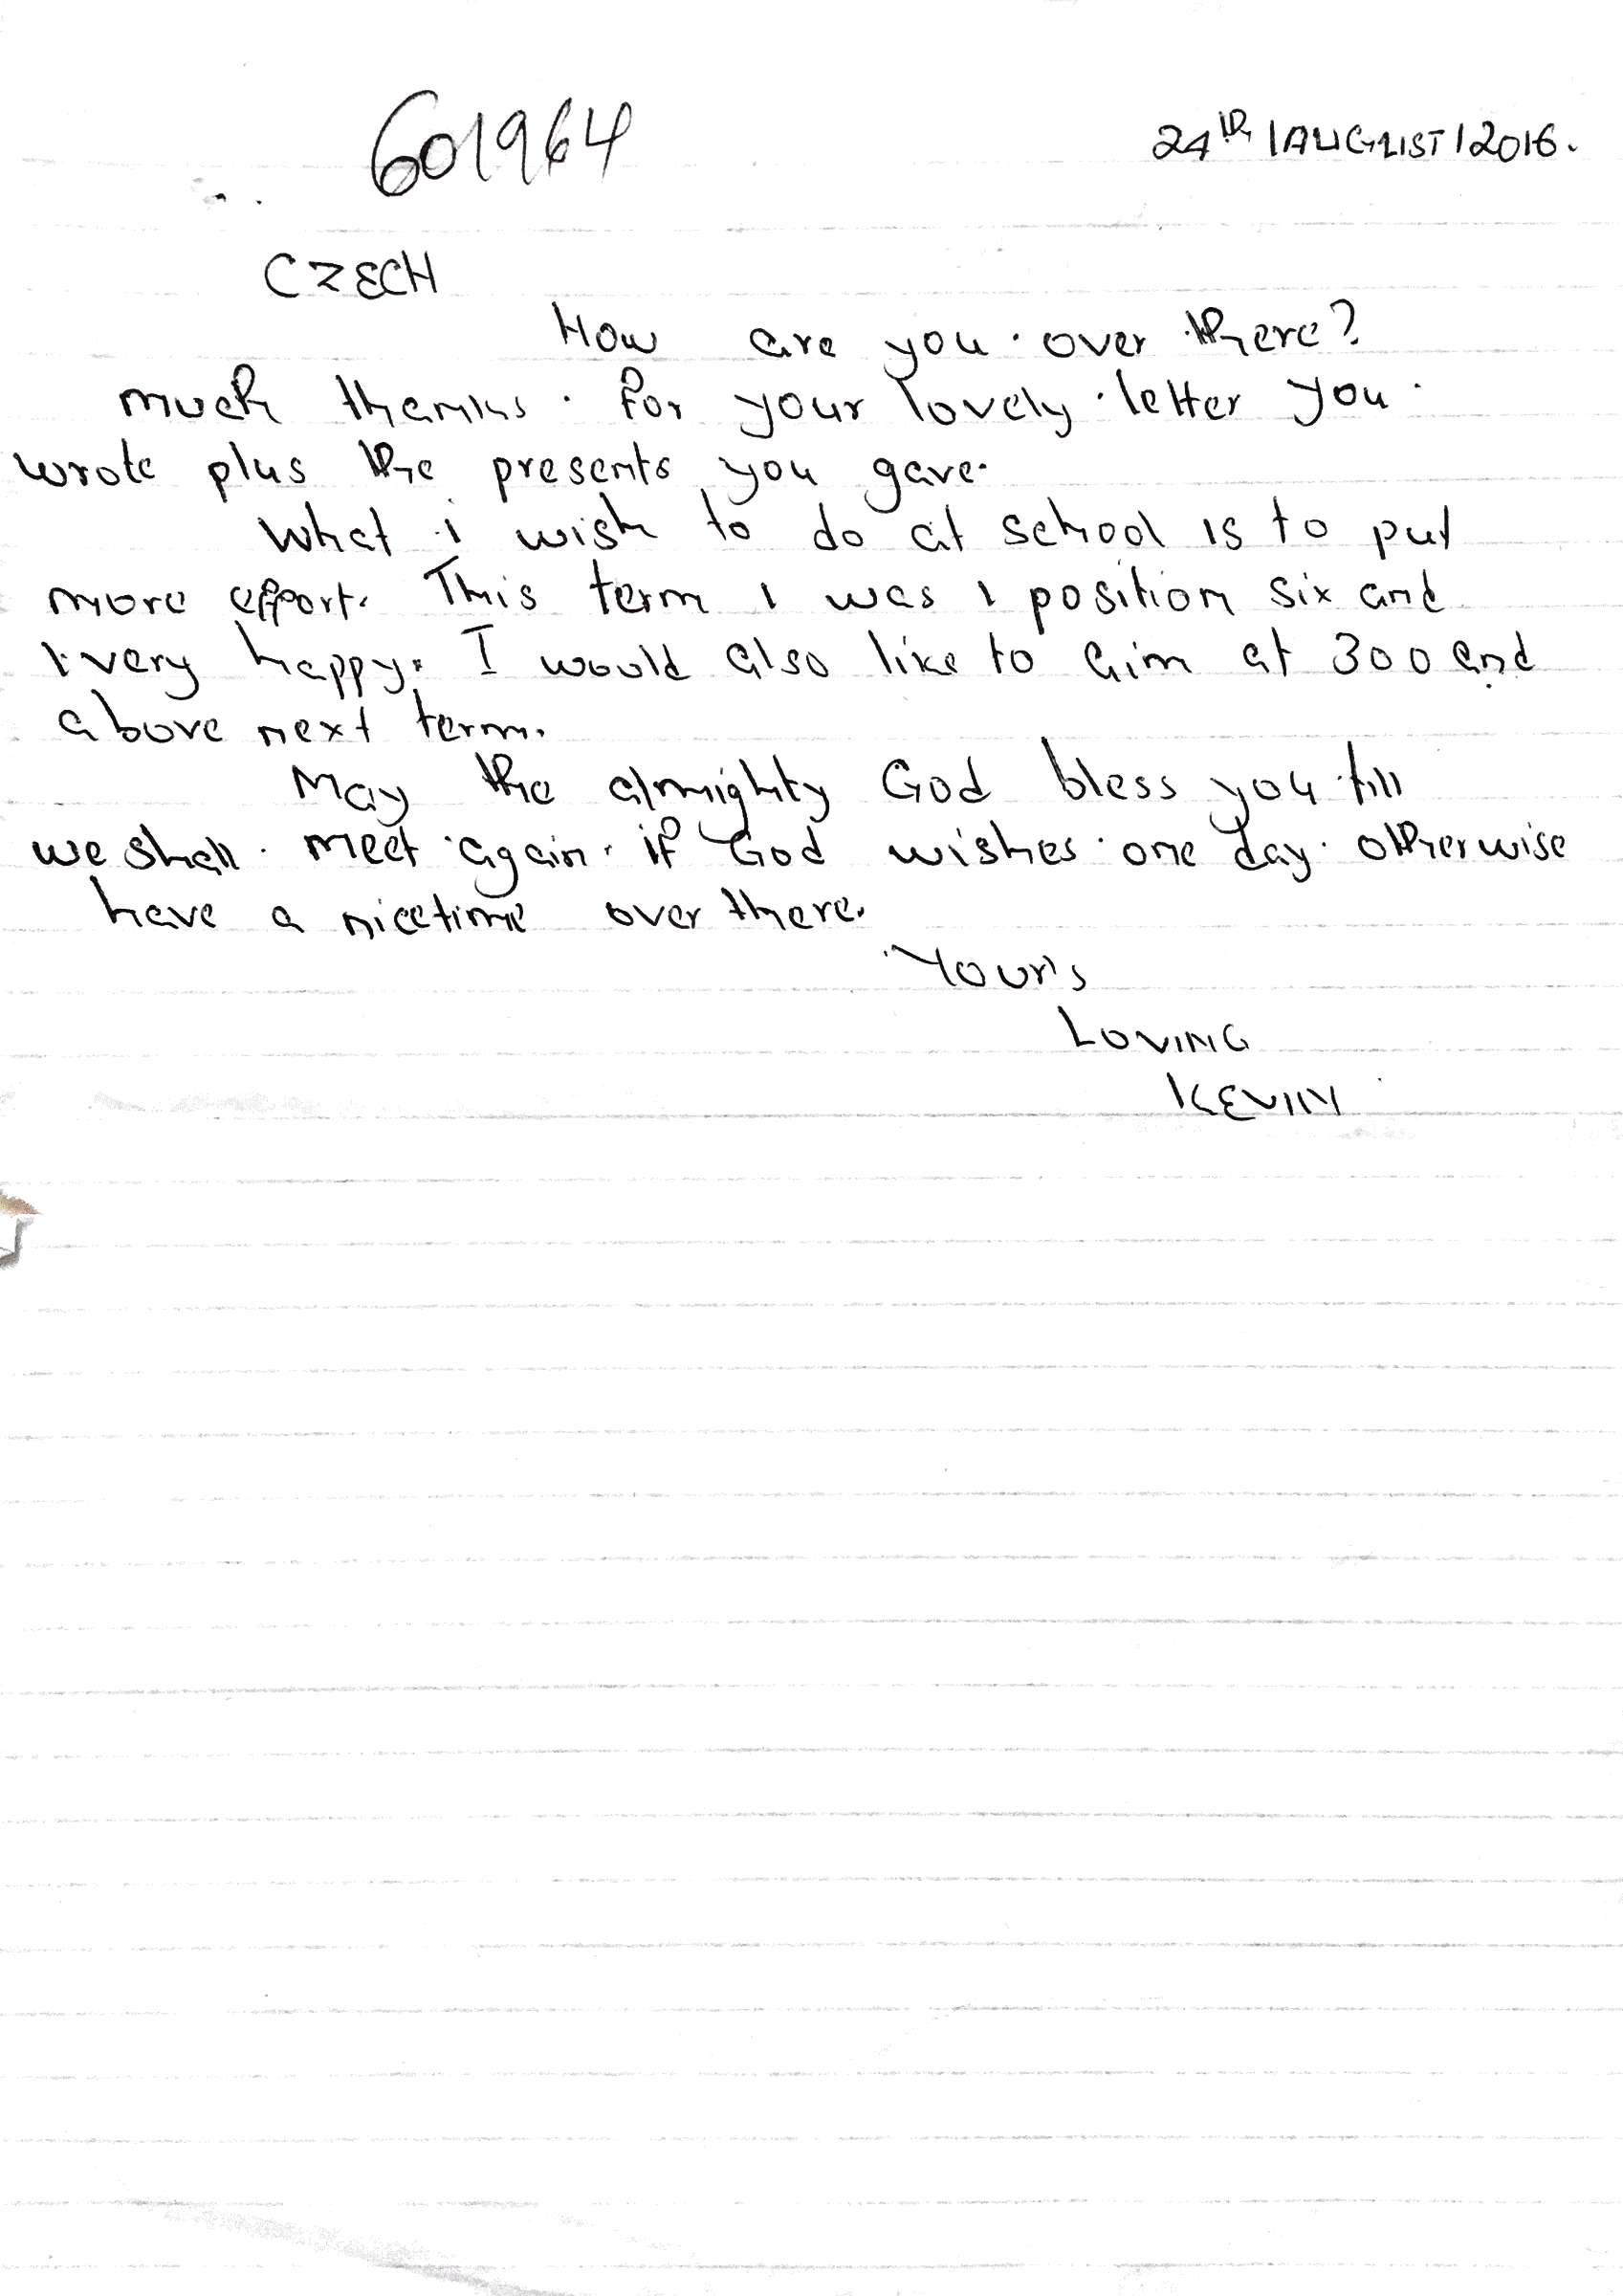 601964
24th/AUGUST/2016.
CZECH
How are you over there?
much thanks. for your lovely letter you
wrote plus the presents you gave.
What i wish to do at school is to put
more effort. This term I was I position six and
I very happy. I would also like to aim at 300 and
above next term.
May the almighty God bless you till
we shall meet again. if God wishes one day. otherwise
have a nicetime over there.
Your's
LOVING
KEVIN